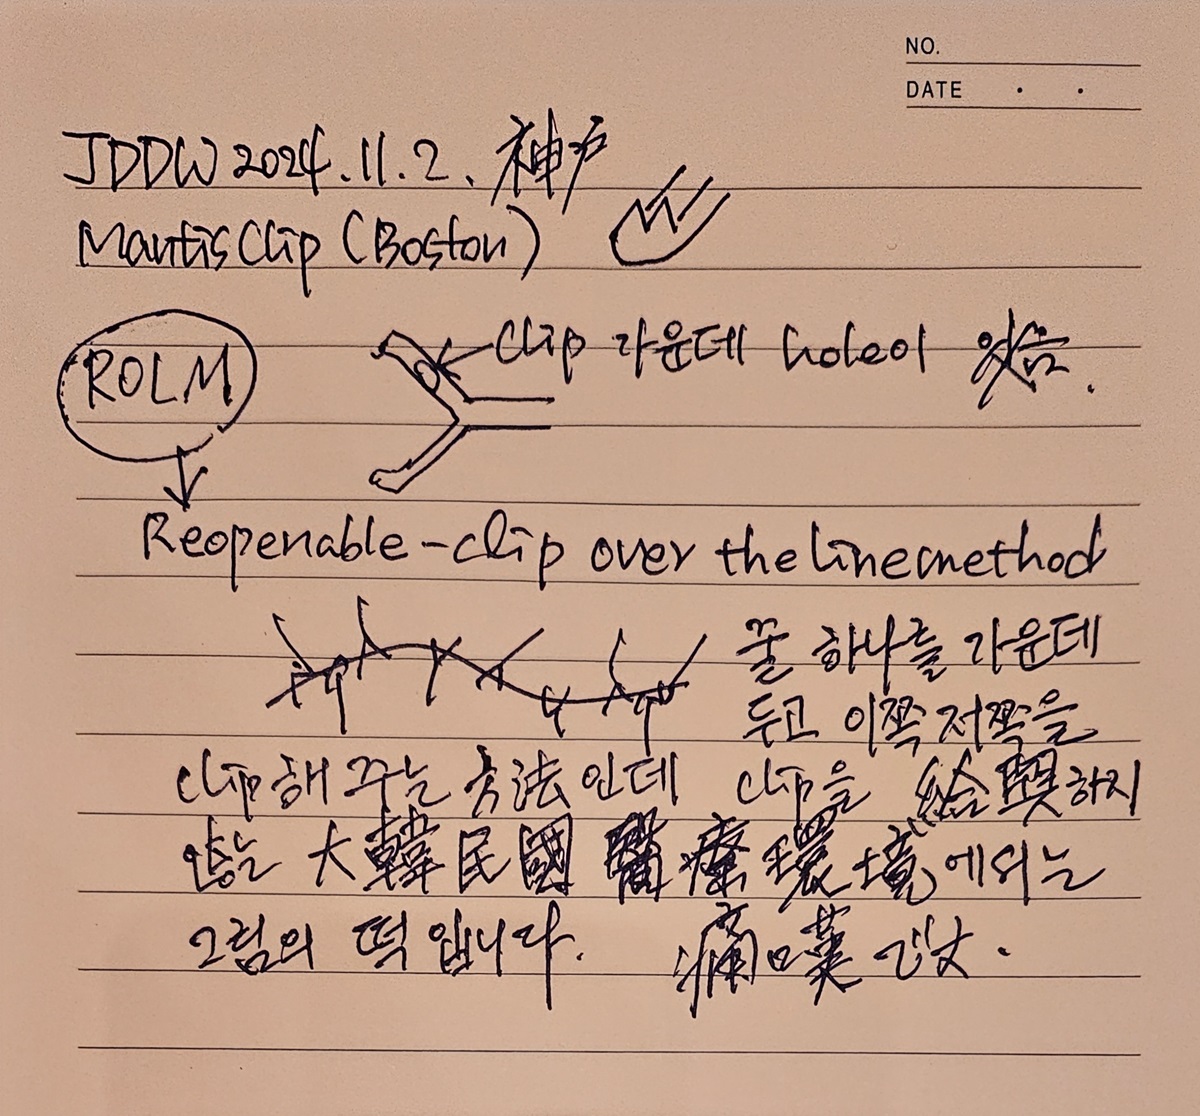 NO.
DATE . .
JDDW 2024.11.2. 神戸
Mantis Clip (Boston)
clip 가운데 hole이 있음.
ROLM
Reopenable-clip over the line method
하나를 가운데
두고 이쪽 저쪽을
clip해 주는 方法인데 clip을 給與하지
않는 大韓民國 醫療環境에서는
그림의 떡입니다. 痛嘆です.